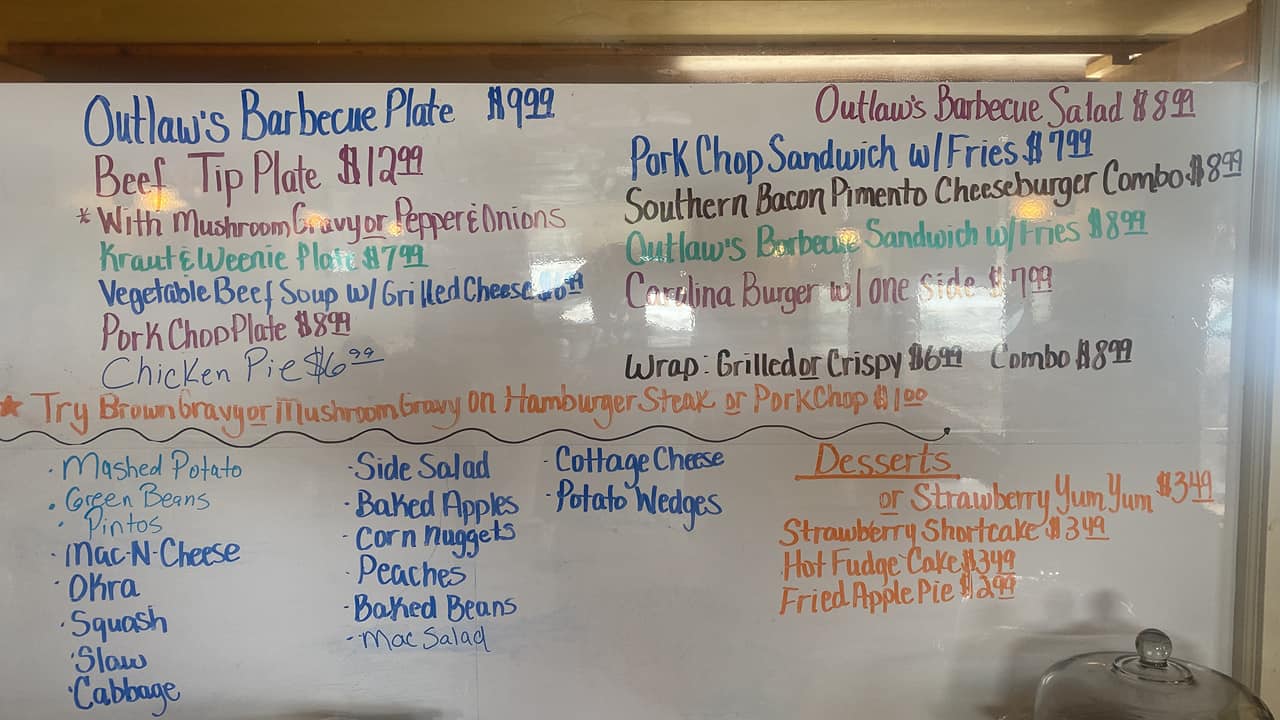 Outlaw's Barbecue Plate $9.99
Beef Tip Plate $12.99
*With Mushroom Gravy or Pepper & Onions
Kraut & Weenie Plate $7.99
Vegetable Beef Soup w/ Grilled Cheese
Pork Chop Plate $8.99
Chicken Pie $6.99
Outlaw's Barbecue Salad $8.99
Pork Chop Sandwich w/Fries $7.99
Southern Bacon Pimento Cheeseburger Combo $8.99
Outlaw's Barbecue Sandwich w/Fries $8.99
Carolina Burger w/one side $7.99
Wrap: Grilled or Crispy $6.99 Combo $8.99
★ Try Brown Gravy or Mushroom Gravy on Hamburger Steak or Pork Chop $1.00
· Mashed Potato
· Green Beans
· Pintos
· Mac-N-Cheese
· Okra
· Squash
· Slaw
· Cabbage
· Side Salad
· Baked Apples
· Corn Nuggets
· Peaches
· Baked Beans
· Mac Salad
· Cottage Cheese
· Potato Wedges
Desserts
or Strawberry Yum Yum $3.49
Strawberry Shortcake $3.49
Hot Fudge Cake $3.49
Fried Apple Pie $2.99